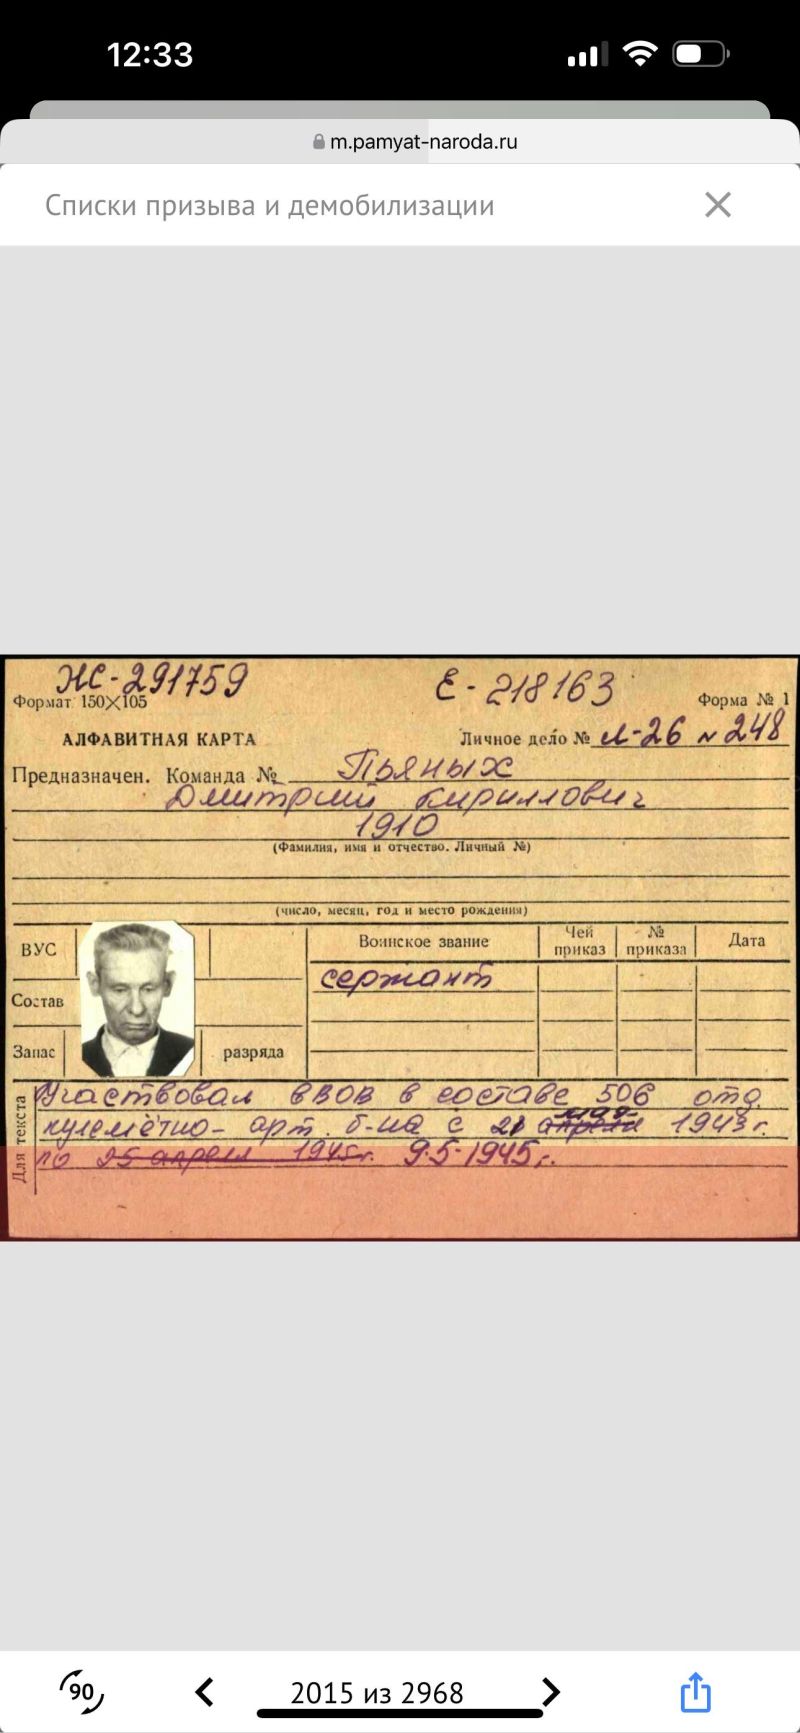 12:33
m.pamyat-naroda.ru
Списки призыва и демобилизации
НС-291759
Е-218163
Формат 150×105
Форма № 1
АЛФАВИТНАЯ КАРТА
Личное дело № Л-26 № 248
Предназначен. Команда № Пьяных
Дмитрий Кириллович
1910
(Фамилия, имя и отчество. Личный №)
(число, месяц, год и место рождения)
ВУС
Состав
Запас
разряда
Воинское звание
Чей приказ
№ приказа
Дата
сержант
Для текста
Участвовал в ВОВ в составе 506 отд.
мая
пулемётно-арт. б-на с 21 апреля 1943 г.
по 25 апреля 1945 г. 9.5-1945 г.
90
2015 из 2968